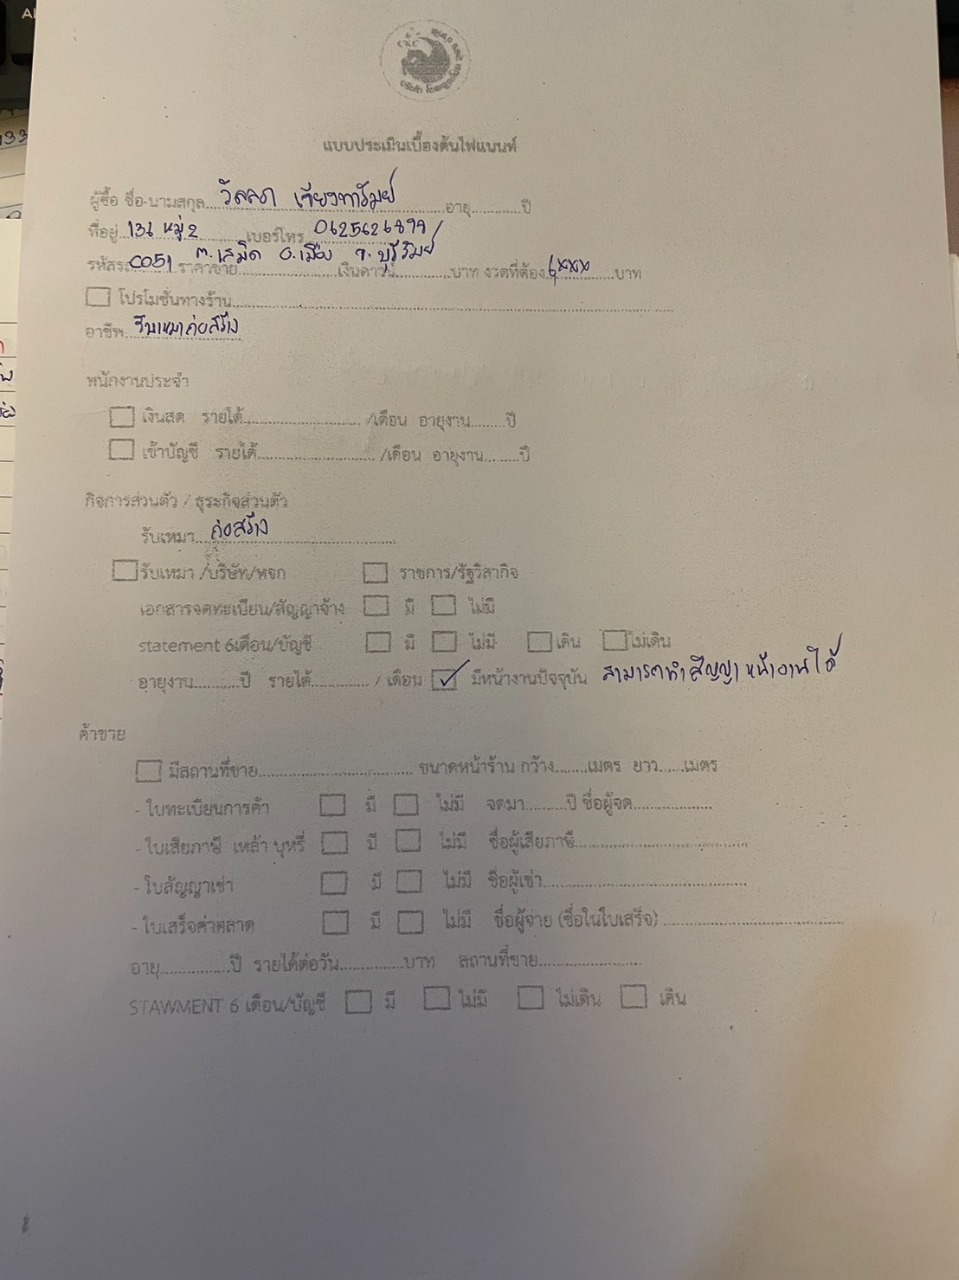 CKC
แบบประเมินเบื้องต้นไฟแนนท์
ผู้ซื้อ ชื่อ-นามสกุล..วัลลภา เจียงทารัมย์......อายุ..........ปี
ที่อยู่..136 หมู่ 2..........เบอร์โทร..0625626899
ต.เสม็ด อ.เมือง จ.บุรีรัมย์
รหัสรถ..0051 ราคาขาย....................เงินดาวน์............บาท งวดที่ต้อง..6xxx......บาท
☐ โปรโมชั่นทางร้าน..........................................................
อาชีพ..รับเหมาก่อสร้าง
พนักงานประจำ
☐ เงินสด รายได้............................ /เดือน อายุงาน........ปี
☐ เข้าบัญชี รายได้............................ /เดือน อายุงาน........ปี
กิจการส่วนตัว / ธุระกิจส่วนตัว
รับเหมา...ก่อสร้าง..............................
☐ รับเหมา /บริษัท/หจก ☐ ราชการ/รัฐวิสากิจ
เอกสารจดทะเบียน/สัญญาจ้าง ☐ มี ☐ ไม่มี
statement 6เดือน/บัญชี ☐ มี ☐ ไม่มี ☐ เดิน ☐ ไม่เดิน
อายุงาน..........ปี รายได้............. / เดือน ☑ มีหน้างานปัจจุบัน สามารถทำสัญญาหน้างานได้
ค้าขาย
☐ มีสถานที่ขาย.................................... ขนาดหน้าร้าน กว้าง.......เมตร ยาว......เมตร
- ใบทะเบียนการค้า ☐ มี ☐ ไม่มี จดมา.........ปี ชื่อผู้จด..................
- ใบเสียภาษี เหล้า บุหรี่ ☐ มี ☐ ไม่มี ชื่อผู้เสียภาษี........................................
- ใบสัญญาเช่า ☐ มี ☐ ไม่มี ชื่อผู้เช่า................................................
- ใบเสร็จค่าตลาด ☐ มี ☐ ไม่มี ชื่อผู้จ่าย (ชื่อในใบเสร็จ) ..........................................
อายุ................ปี รายได้ต่อวัน...............บาท สถานที่ขาย........................
STAWMENT 6 เดือน/บัญชี ☐ มี ☐ ไม่มี ☐ ไม่เดิน ☐ เดิน